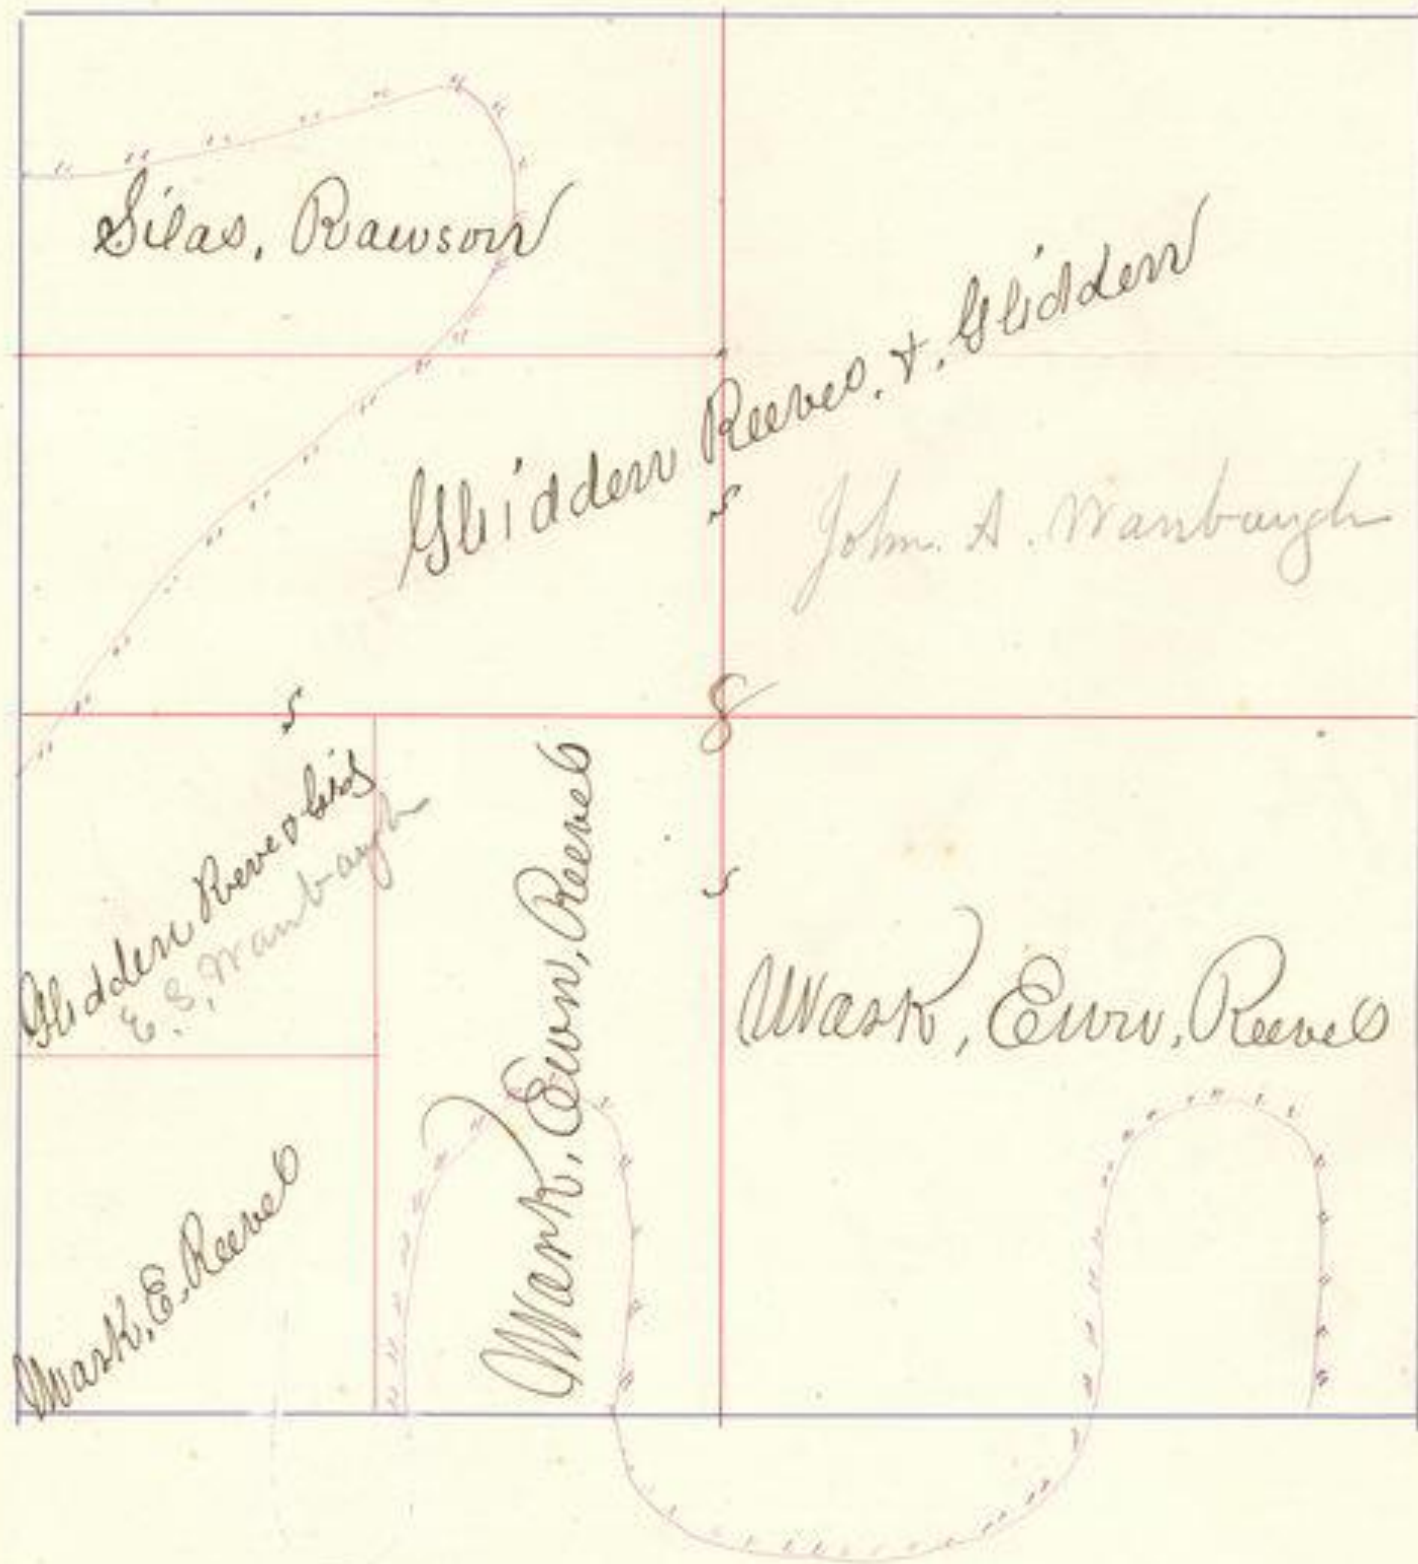 Silas, Rawson
Glidden Reeves, &, Glidden
John. A. Wanbaugh
8
Glidden Reeves & Glid
E. S, Wanbaugh
Mark, Ewn, Reeves
Mark, Ewn, Reeves
Mark, E, Reeves